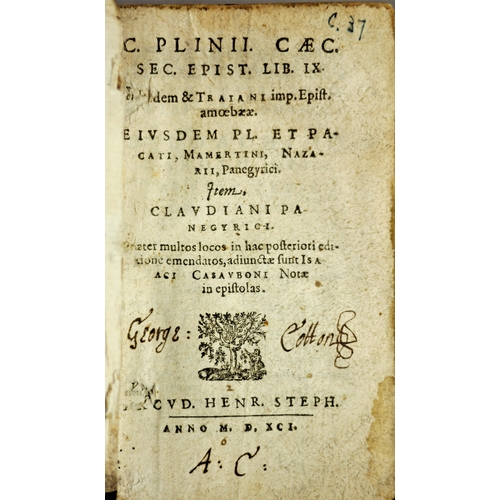 C. 37
C. PLINII. CÆC.
SEC. EPIST. LIB. IX.
dem & TRAIANI imp. Epist.
amœbææ.
EIVSDEM PL. ET PA-
CATI, MAMERTINI, NAZA-
RII, Panegyrici.
Item,
CLAVDIANI PA-
NEGYRICI.
ter multos locos in hac posteriori edi-
tione emendatos, adiunctæ sunt ISA-
ACI CASAVBONI Notæ
in epistolas.
George: Cotton
CVD. HENR. STEPH.
ANNO M. D. XCI.
A: C: